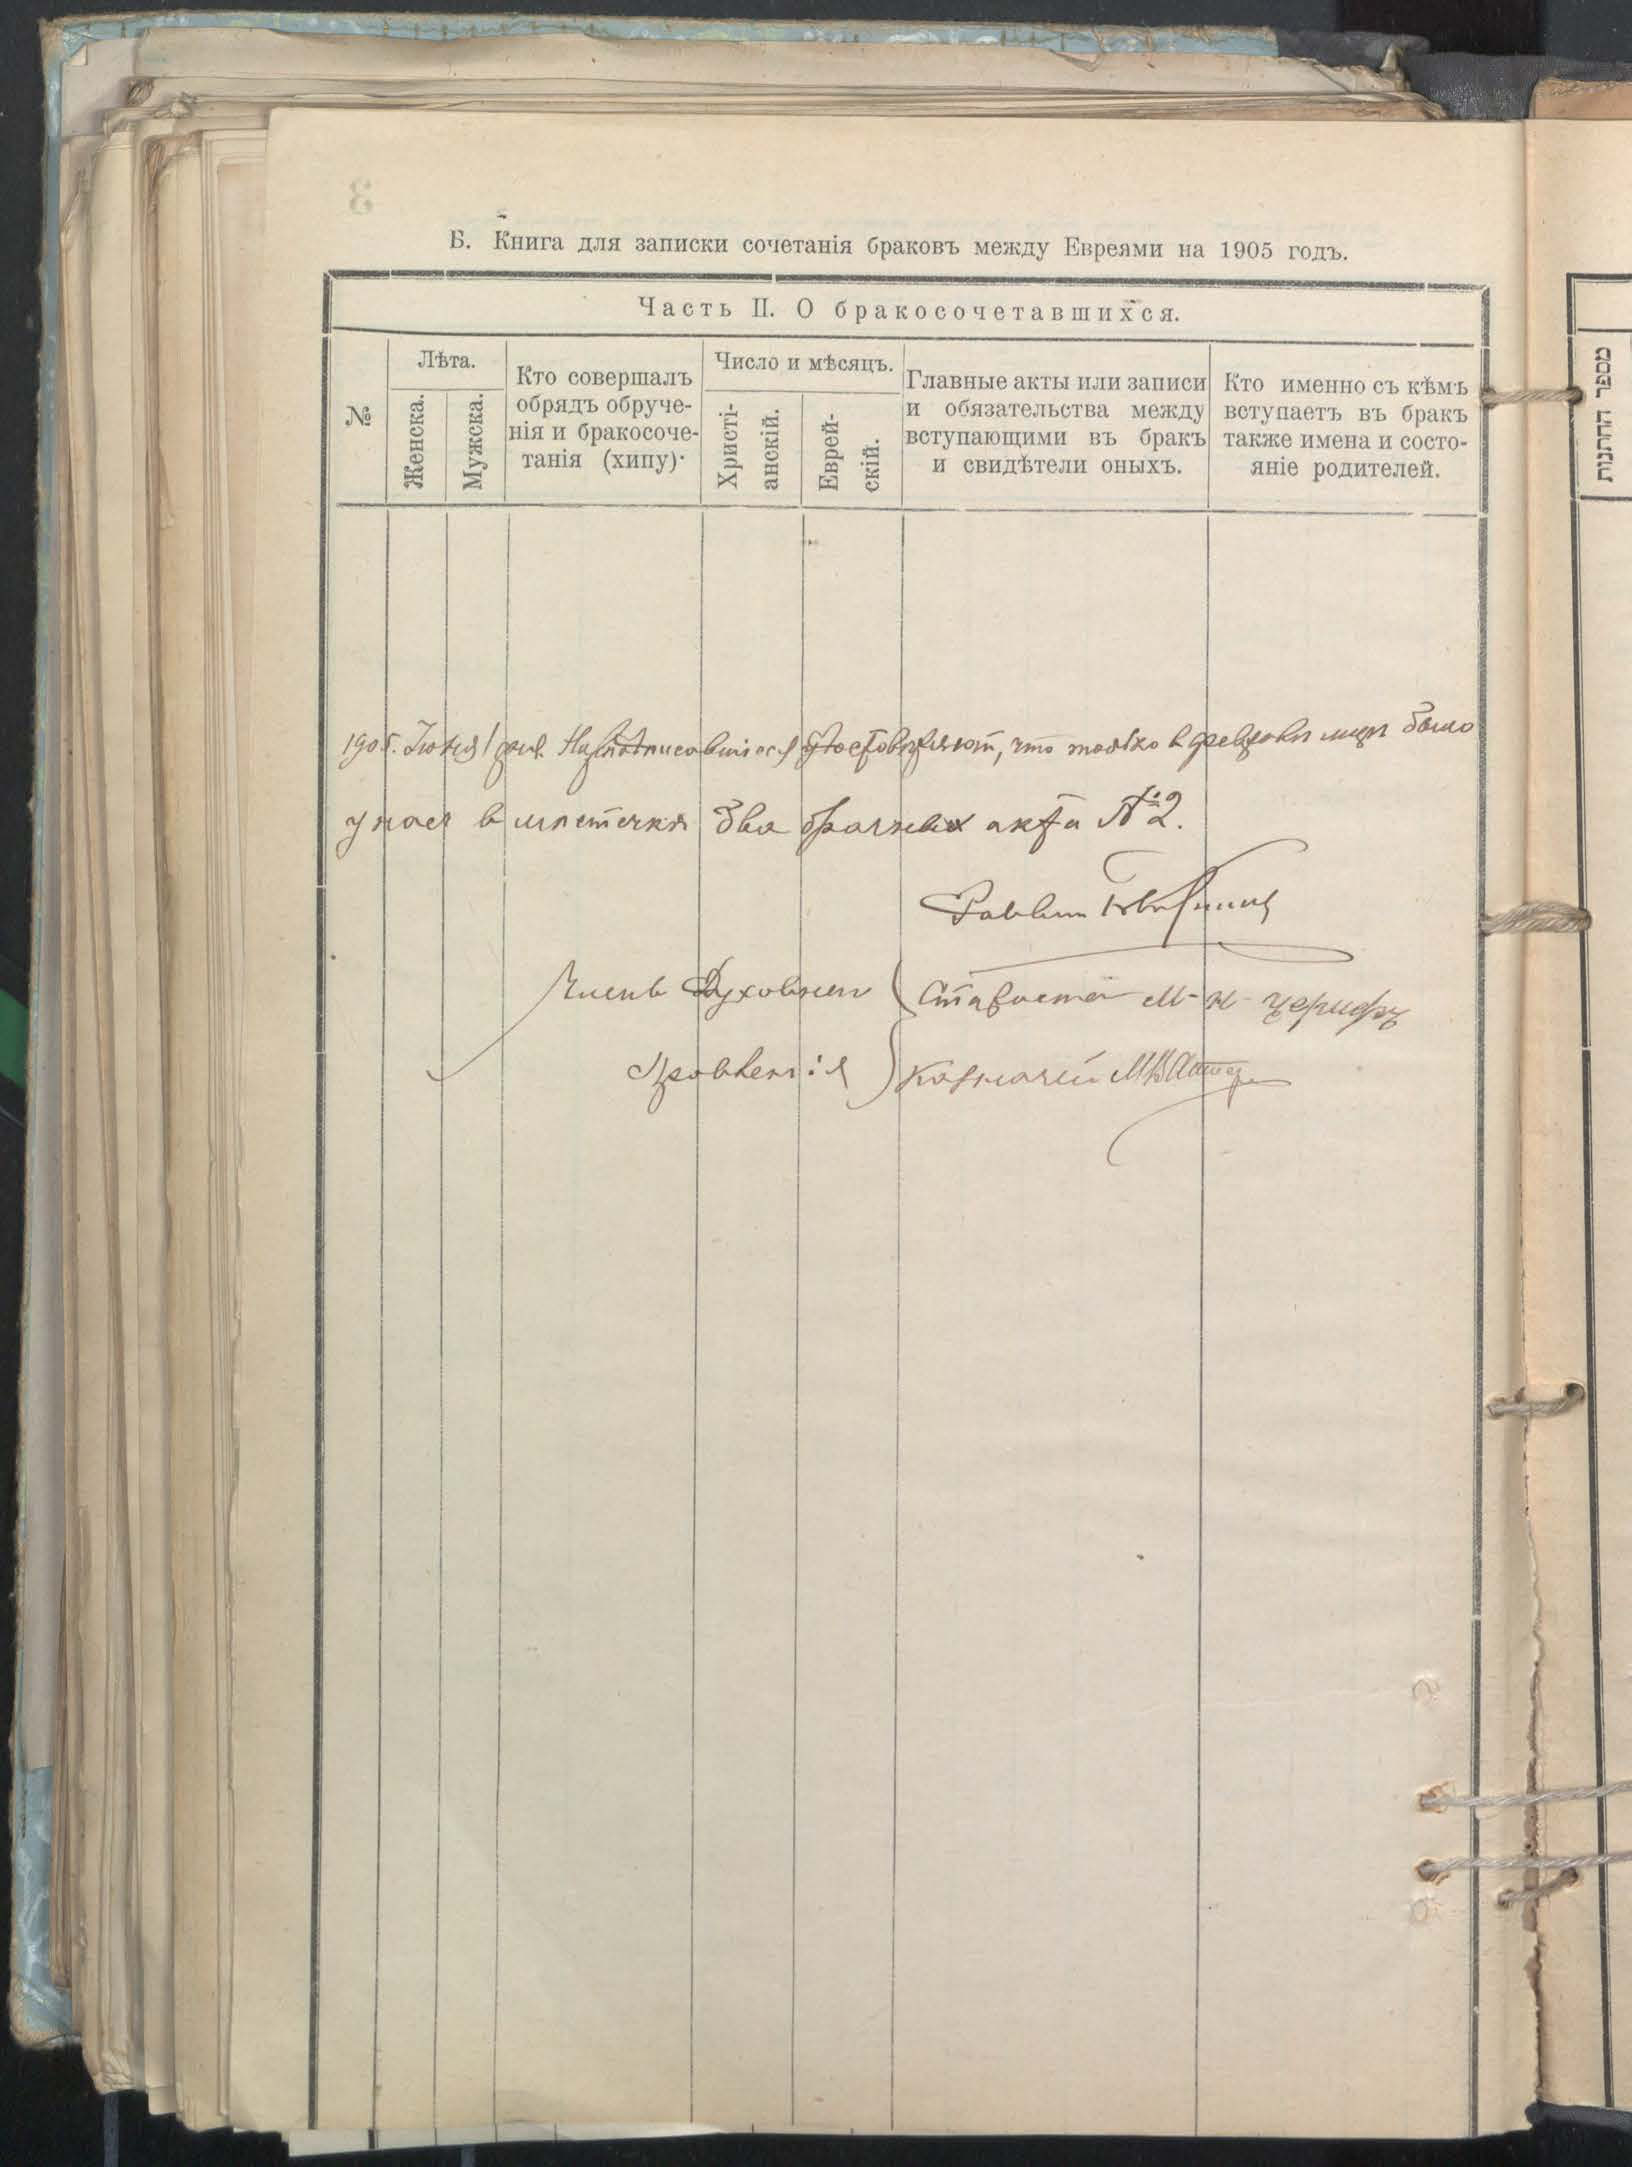 Б. Книга для записки сочетанія браковъ между Евреями на 1905 годъ.
Часть II. О бракосочетавшихся.
№
Лѣта.
Женска.
Мужска.
Кто совершалъ
обрядъ обруче-
нія и бракосоче-
танія (хипу).
Число и мѣсяцъ.
Христі-
анскій.
Еврей-
скій.
Главные акты или записи
и обязательства между
вступающими въ бракъ
и свидѣтели оныхъ.
Кто именно съ кѣмъ
вступаетъ въ бракъ
также имена и состо-
яніе родителей.
1905. Іюня 1 дня. удостовѣряютъ, что только в было
у насъ в мѣстечкѣ два брачныхъ акта № 2.
Раввинъ
Члены Духовнаго Староста М-Н-
Правленія Казначей
מספר החתונות